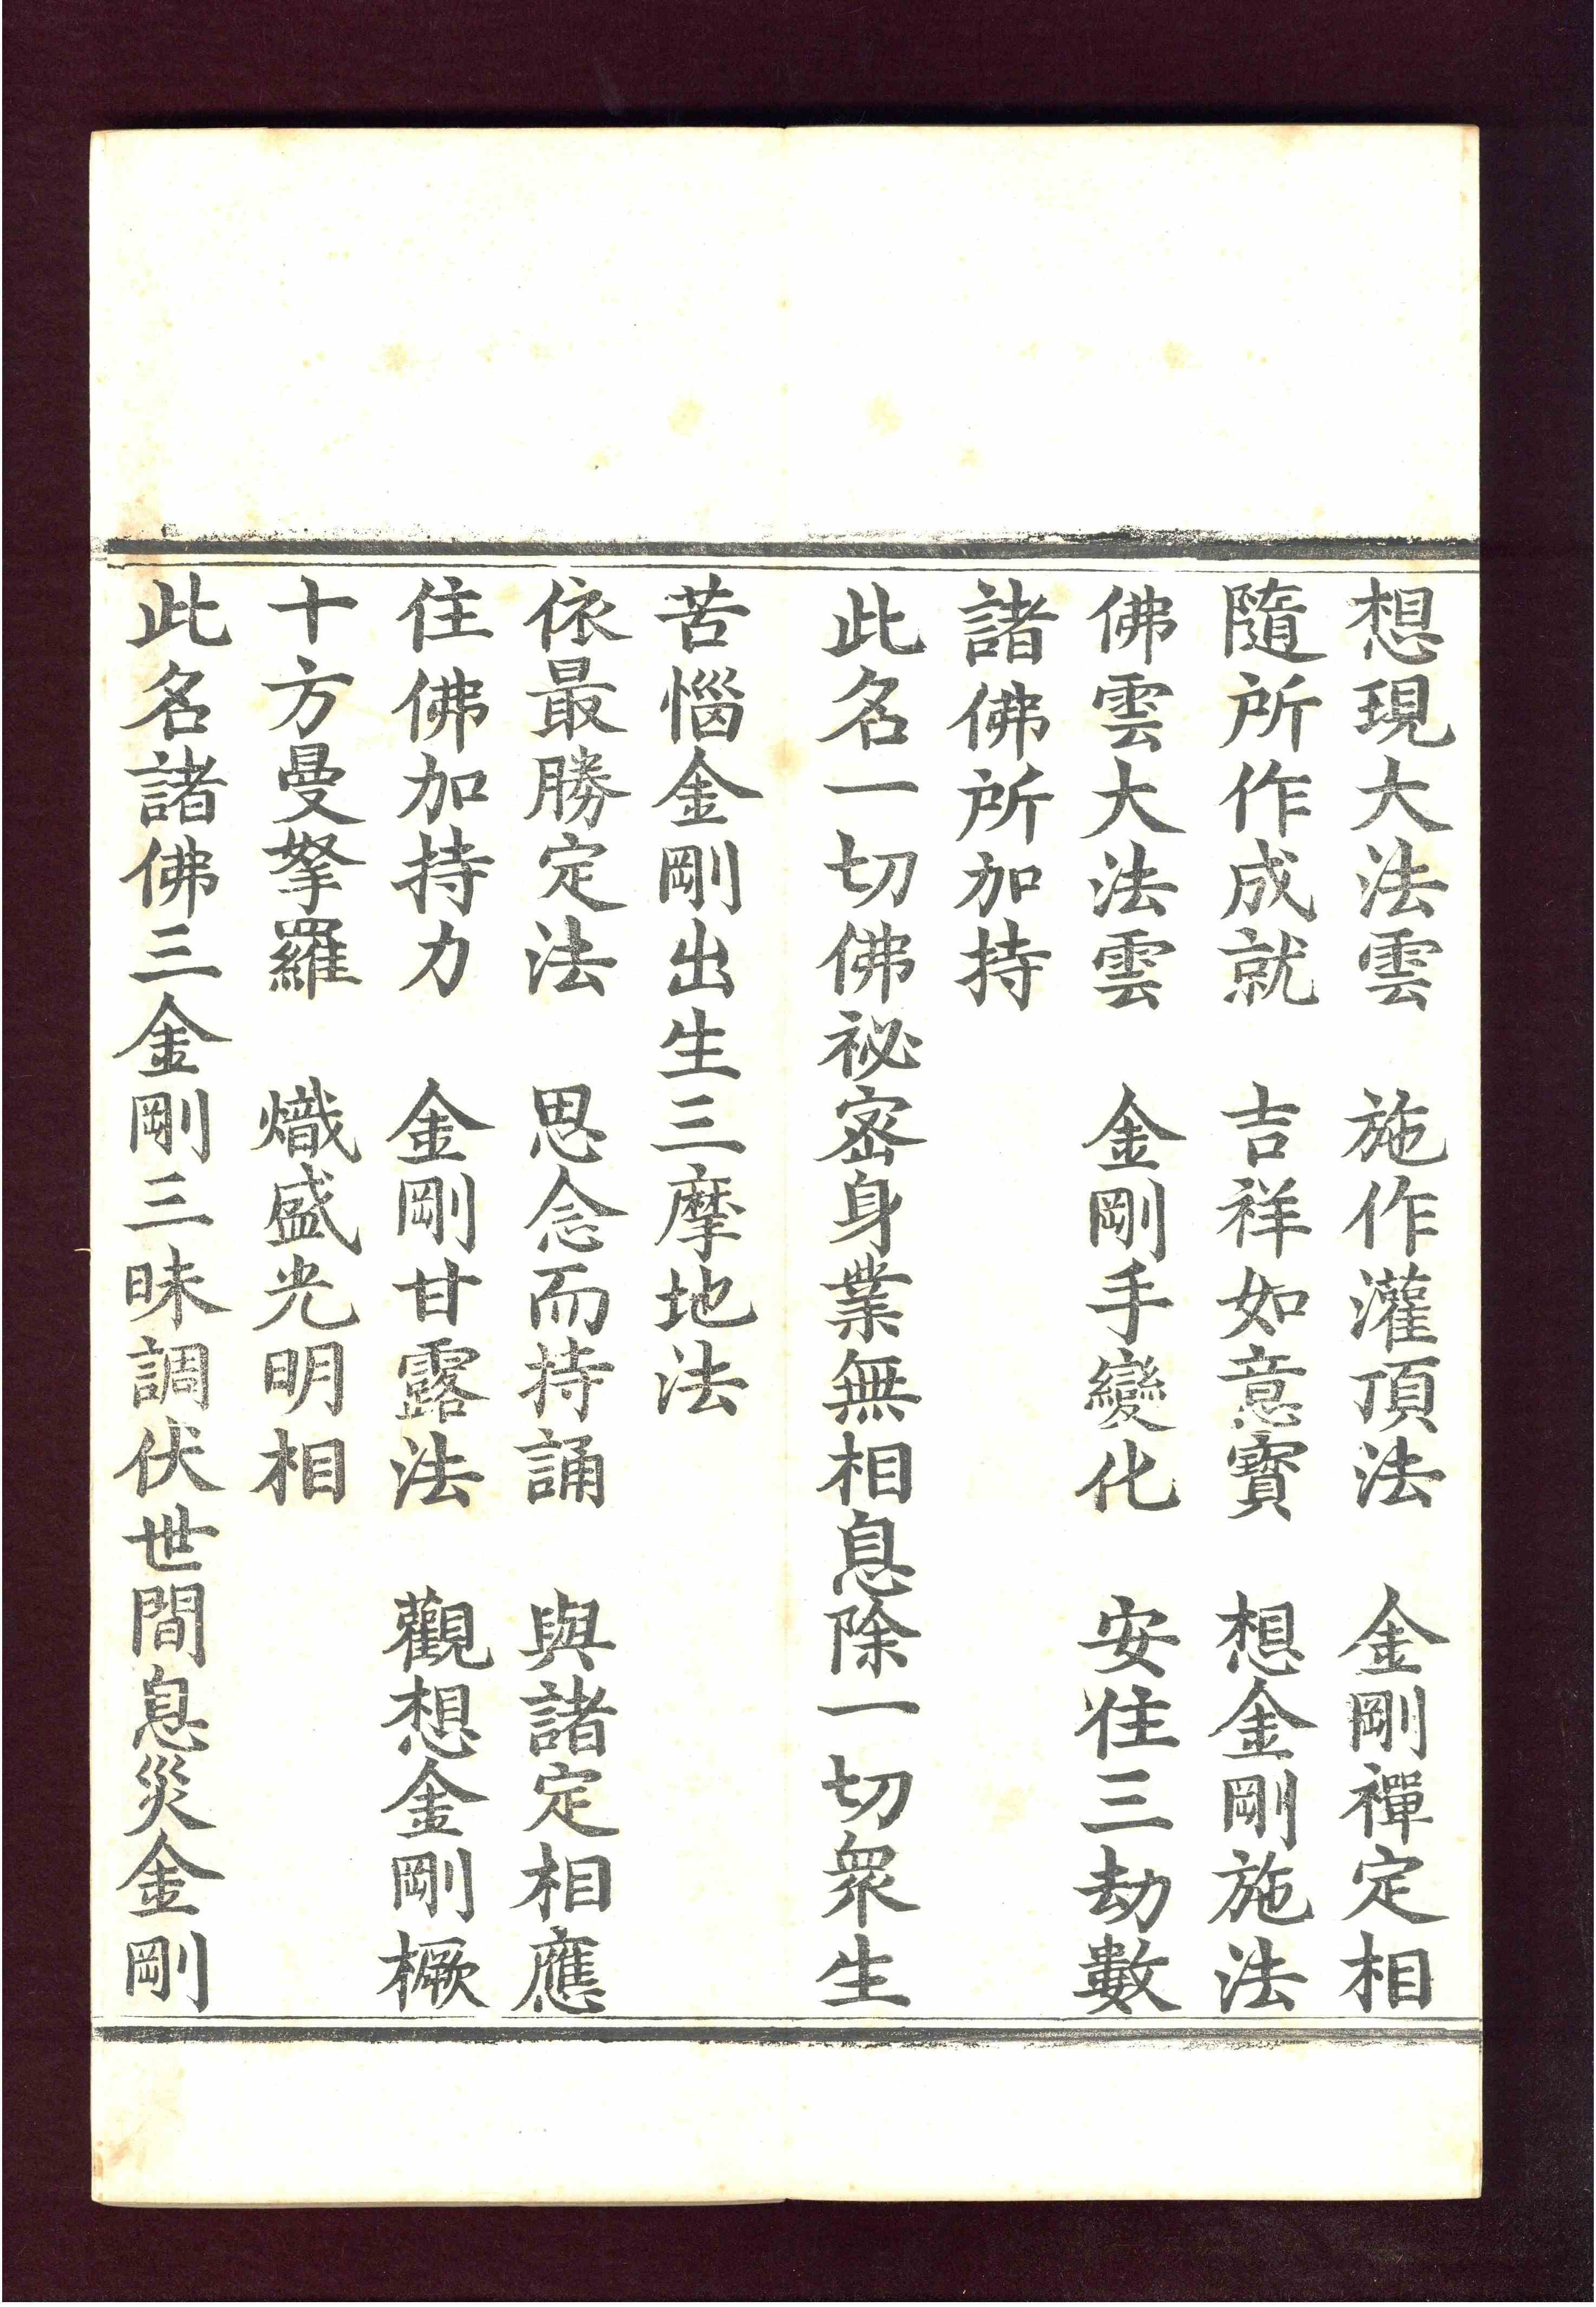 想現大法雲　施作灌頂法　金剛禪定相
隨所作成就　吉祥如意寶　想金剛施法
佛雲大法雲　金剛手變化　安住三劫數
諸佛所加持
此名一切佛祕密身業無相息除一切衆生
苦惱金剛出生三摩地法
依最勝定法　思念而持誦　與諸定相應
住佛加持力　金剛甘露法　觀想金剛橛
十方曼拏羅　熾盛光明相
此名諸佛三金剛三昧調伏世間息災金剛